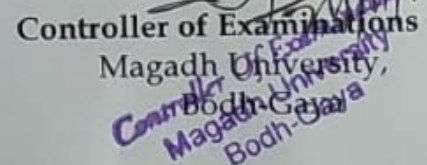 Controller of Examinations
Magadh University,
Bodh-Gaya
Controller Of Examinations
Magadh University
Bodh-Gaya